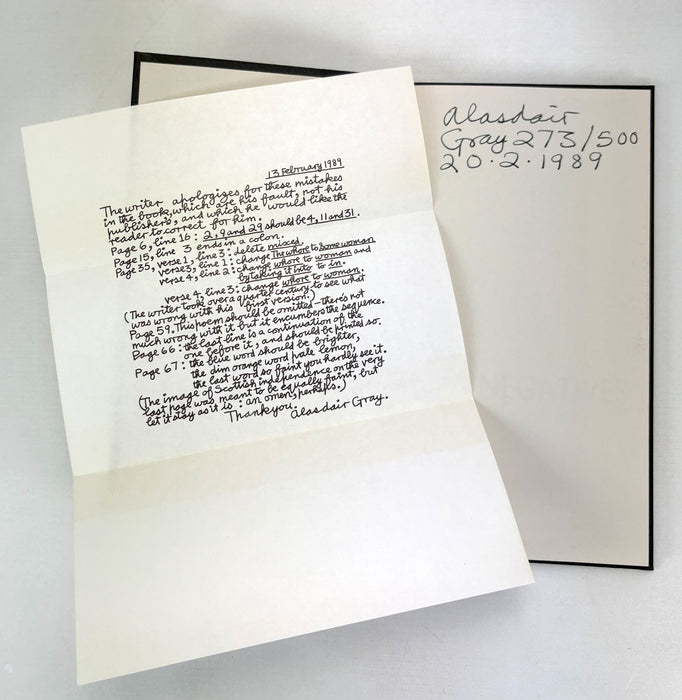 13 February 1989
The writer apologizes for these mistakes
in the book, which are his fault, not his
publisher's, and which he would like the
reader to correct for him.
Page 6, line 16: 2, 9 and 29 should be 4, 11 and 31.
Page 15, line 3 ends in a colon.
Page 35, verse 1, line 3: delete mixed,
verse 3, line 1: change The whore to Some woman
verse 4, line 2: change whore to woman and
by taking it into to in.
verse 4, line 3: change whore to woman.
(The writer took over a quarter century to see what
was wrong with his first version.)
Page 59. This poem should be omitted – there's not
much wrong with it but it encumbers the sequence.
Page 66: the last line is a continuation of the
one before it, and should be printed so.
Page 67: the blue word should be brighter,
the dim orange word pale lemon,
the last word so faint you hardly see it.
(The image of Scottish independence on the very
last page was meant to be equally faint, but
let it stay as it is: an omen, perhaps.)
Thank you, Alasdair Gray.
Alasdair
Gray 273/500
20·2·1989